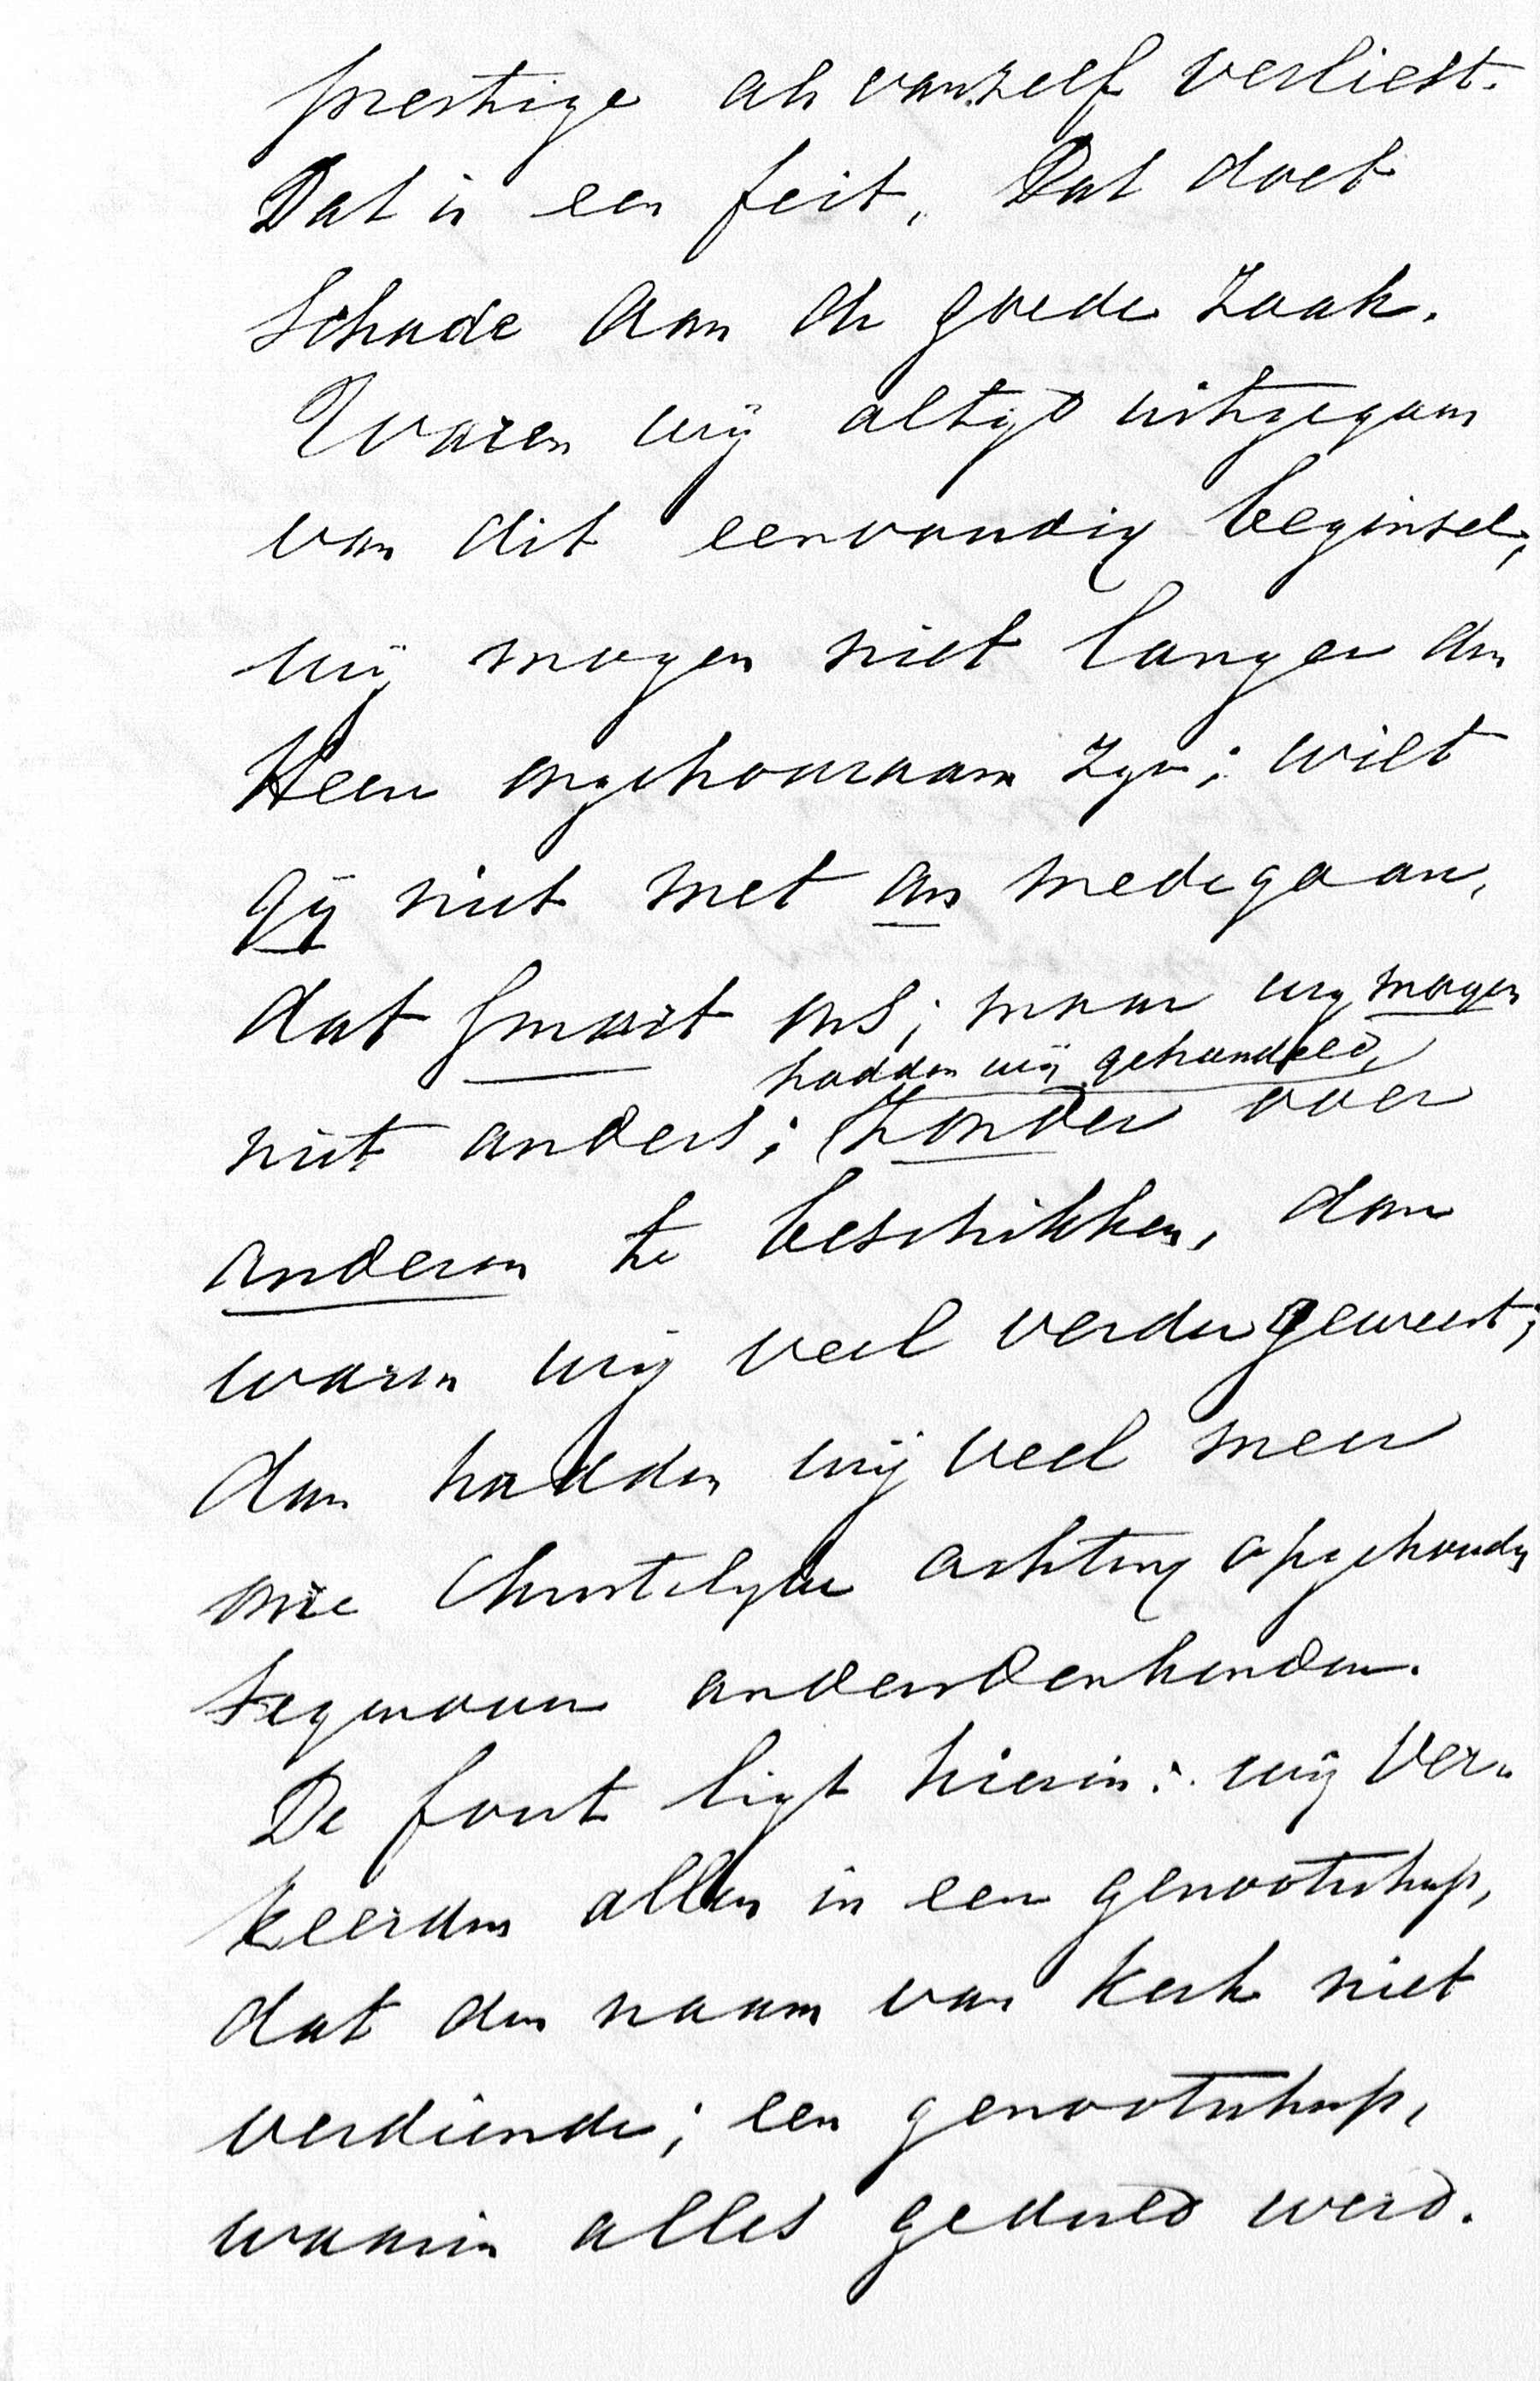 prestige als vanzelf verliest.
Dat is een feit. Dat doet
schade aan de goede zaak.
Waren wij altijd uitgegaan
van dit eenvoudig beginsel;
wij mogen niet langer den
Heere ongehoorzaam zijn; wilt
gij niet met ons medegaan,
dat smart ons; maar wij mogen
hadden wij gehandeld,
niet anders; zonder over
anderen te beschikken, dan
waren wij veel verder geweest;
dan hadden wij veel meer
onze Christelijke achting opgehouden
tegenover andersdenkenden.
De fout ligt hierin: wij ver-
keerden allen in een genootschap,
dat den naam van kerk niet
verdiende; een genootschap,
waarin alles geduld werd.